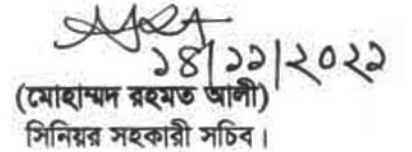 ১৪/১১/২০২১
(মোহাম্মদ রহমত আলী)
সিনিয়র সহকারী সচিব।